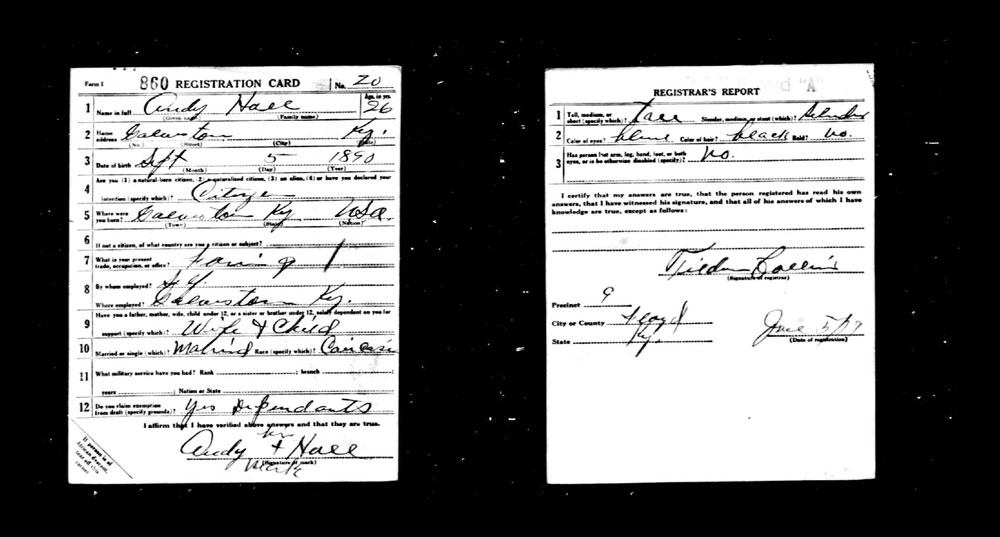 Form 1 860 REGISTRATION CARD No. 20
1 Name in full Andy Hall Age, in yrs. 26
(Given name) (Family name)
2 Home address Galveston Ky.
(No.) (Street) (City) (State)
3 Date of birth Sept 5 1890
(Month) (Day) (Year)
4 Are you (1) a natural-born citizen, (2) a naturalized citizen, (3) an alien, (4) or have you declared your
intention (specify which)? Citizen
5 Where were you born? Galveston Ky USA
(Town) (State) (Nation)
6 If not a citizen, of what country are you a citizen or subject?
7 What is your present trade, occupation, or office? Farming
8 By whom employed?
Where employed? Galveston Ky.
9 Have you a father, mother, wife, child under 12, or a sister or brother under 12, solely dependent on you for
support (specify which)? Wife & Child
10 Married or single (which)? Married Race (specify which)? Caucasian
11 What military service have you had? Rank ; branch
years ; Nation or State
12 Do you claim exemption from draft (specify grounds)? Yes Dependants
I affirm that I have verified above answers and that they are true.
his
Andy + Hall
(Signature or mark)
mark
If person is of
African descent,
tear off this
corner
REGISTRAR'S REPORT
1 Tall, medium, or short (specify which)? Tall Slender, medium, or stout (which)? Slender
2 Color of eyes? blue Color of hair? black Bald? No.
3 Has person lost arm, leg, hand, foot, or both eyes, or is he otherwise disabled (specify)? No.
I certify that my answers are true, that the person registered has read his own
answers, that I have witnessed his signature, and that all of his answers of which I have
knowledge are true, except as follows:
Tilden Collins
(Signature of registrar)
Precinct 9
City or County Floyd
State Ky. June 5/17
(Date of registration)